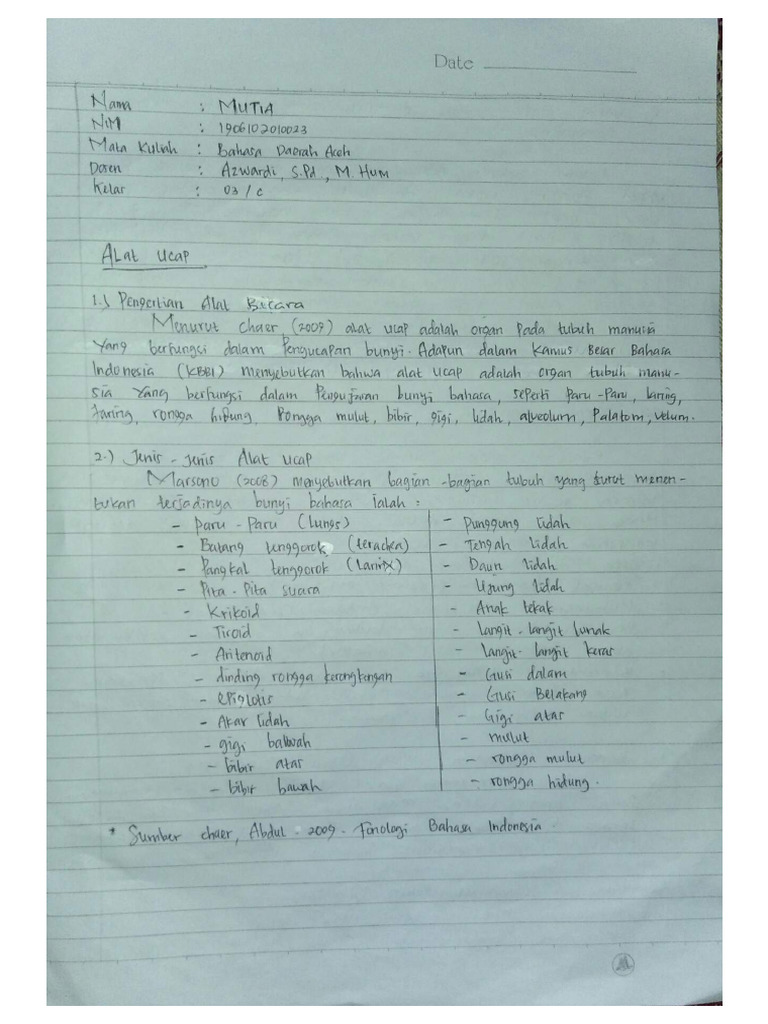 Date
Nama : MUTIA
NIM : 1906102010023
Mata Kuliah : Bahasa Daerah Aceh
Dosen : Azwardi, S.Pd., M. Hum
Kelas : 03 / C
ALat Ucap
1.) Pengertian Alat Bicara
Menurut Chaer (2009) alat ucap adalah organ pada tubuh manusia
Yang berfungsi dalam Pengucapan bunyi. Adapun dalam Kamus Besar Bahasa
Indonesia (KBBI) menyebutkan bahwa alat ucap adalah organ tubuh manu-
sia Yang berfungsi dalam Pengujaran bunyi bahasa, seperti Paru-Paru, laring,
faring, rongga hidung, Rongga mulut, bibir, gigi, lidah, alveolum, Palatom, velum.
2.) Jenis-Jenis Alat Ucap
Marsono (2008) menyebutkan bagian-bagian tubuh yang turut menen-
tukan terjadinya bunyi bahasa ialah :
- Paru-Paru (Lungs)
- Batang tenggorok (terachea)
- Pangkal tenggorok (Larinx)
- Pita-Pita suara
- Krikoid
- Tiroid
- Aritenoid
- dinding rongga kerongkongan
- epiglotis
- Akar lidah
- gigi bawah
- bibir atas
- bibir bawah
- Punggung lidah
- Tengah lidah
- Daun lidah
- Ujung lidah
- Anak tekak
- Langit-langit lunak
- Langit-langit keras
- Gusi dalam
- Gusi Belakang
- Gigi atas
- mulut
- rongga mulut
- rongga hidung.
* Sumber chaer, Abdul. 2009. Fonologi Bahasa Indonesia.